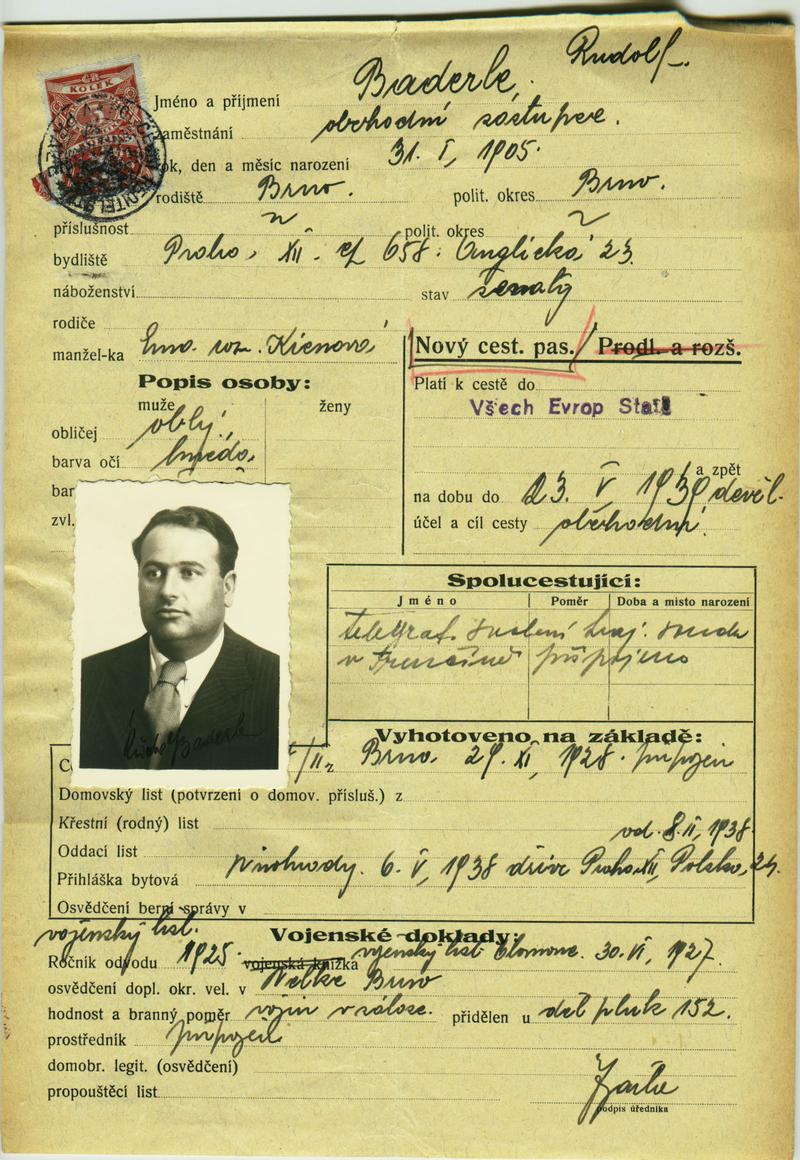 ČR
KOLEK
5
Jméno a příjmení Baderle, Rudolf
zaměstnání obchodní zástupce.
rok, den a měsíc narození 31. I, 1905.
rodiště Brno. polit. okres Brno.
příslušnost polit. okres
bydliště Praha, XII. čp 658. Anglická 23.
náboženství stav ženatý
rodiče
manžel-ka roz.
Nový cest. pas. / Prodl. a rozš.
Popis osoby:
Platí k cestě do
muže ženy
Všech Evrop Stát
obličej oblý,
barva očí hnědé,
a zpět
bar
na dobu do 23. V, 1939
zvl.
účel a cíl cesty obchodní.
Spolucestující:
Jméno Poměr Doba a místo narození
telegraf. svolení
v připojeno
Vyhotoveno na základě:
Brno. XI, 1928. připojen
Domovský list (potvrzení o domov. přísluš.) z
Křestní (rodný) list
od. 8. II, 1938.
Oddací list
Přihláška bytová Vinohrady. 6. V, 1938 dříve Praha XII, Polská,
Osvědčení berní správy v
vojenský list.
Vojenské doklady:
Ročník odvodu 1925. vojenská knížka vojenský list Olomouc. 30. VI, 1927.
osvědčení dopl. okr. vel. v Velké Brno
hodnost a branný poměr vojín v záloze. přidělen u děl pluk 152.
prostředník připojen
domobr. legit. (osvědčení)
propouštěcí list
podpis úředníka